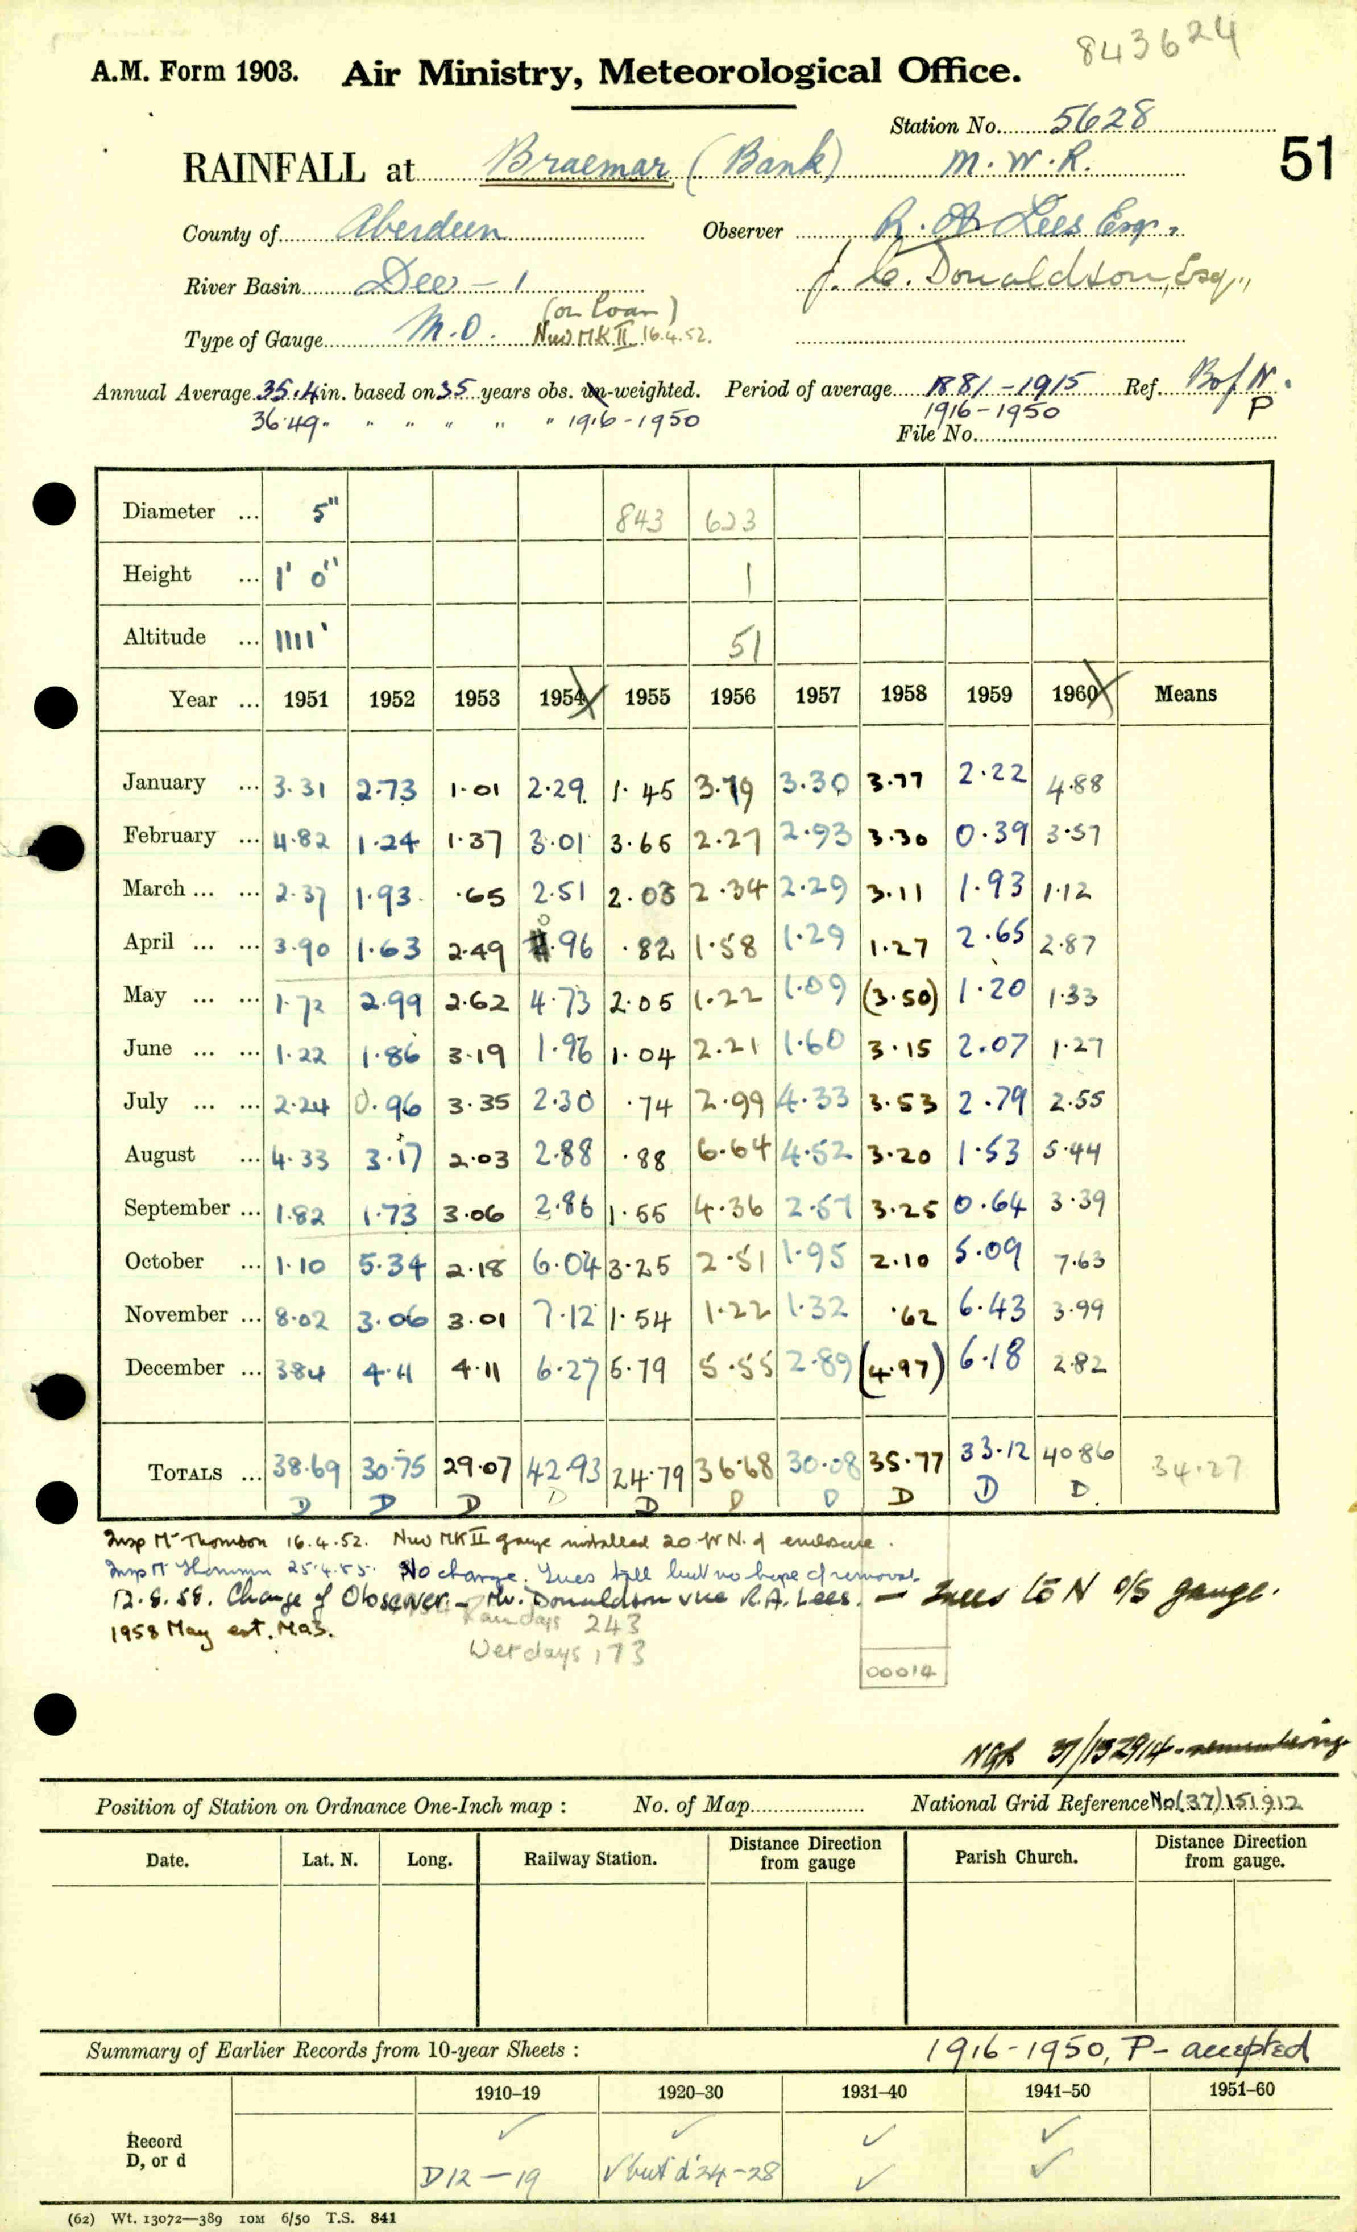 843624
A.M. Form 1903. Air Ministry, Meteorological Office.
Station No. 5628
RAINFALL at Braemar (Bank) M.W.R. 51
County of Aberdeen Observer R. A. Lees Esq.
River Basin Dee - 1 J. C. Donaldson, Esq.,
(on loan)
Type of Gauge M.O. New MK II 16.4.52.
Annual Average 35.4 in. based on 35 years obs. un-weighted. Period of average 1881-1915 Ref. B of N.
36.49 " " " " " " 1916-1950 1916-1950 P
File No.
Diameter ... 5" 843 623
Height ... 1' 0" 1
Altitude ... 1111' 51
Year ... 1951 1952 1953 1954 X 1955 1956 1957 1958 1959 1960 X Means
January ... 3.31 2.73 1.01 2.29 1.45 3.79 3.30 3.77 2.22 4.88
February ... 4.82 1.24 1.37 3.01 3.65 2.27 2.93 3.30 0.39 3.57
March ... ... 2.37 1.93 .65 2.51 2.03 2.34 2.29 3.11 1.93 1.12
April ... ... 3.90 1.63 2.49 0.96 .82 1.58 1.29 1.27 2.65 2.87
May ... ... 1.72 2.99 2.62 4.73 2.05 1.22 1.09 (3.50) 1.20 1.33
June ... ... 1.22 1.86 3.19 1.96 1.04 2.21 1.60 3.15 2.07 1.27
July ... ... 2.24 0.96 3.35 2.30 .74 2.99 4.33 3.53 2.79 2.55
August ... 4.33 3.17 2.03 2.88 .88 6.64 4.52 3.20 1.53 5.44
September ... 1.82 1.73 3.06 2.86 1.55 4.36 2.57 3.25 0.64 3.39
October ... 1.10 5.34 2.18 6.04 3.25 2.51 1.95 2.10 5.09 7.63
November ... 8.02 3.06 3.01 7.12 1.54 1.22 1.32 .62 6.43 3.99
December ... 3.84 4.11 4.11 6.27 5.79 5.55 2.89 (4.97) 6.18 2.82
TOTALS ... 38.69 30.75 29.07 42.93 24.79 36.68 30.08 35.77 33.12 40.86 34.27
D D D D D D D D D D
Insp Mr Thomson 16.4.52. New MK II gauge installed 20 ft N. of enclosure.
Insp Mr Thomson 25.4.55. No change. Trees tall but no hope of removal.
12.6.58. Change of Observer - Mr. Donaldson vice R.A. Lees. - Trees to N o/s gauge.
1958 May est. Raindays 243
Wet days 173
00014
NGR 37/152914
Position of Station on Ordnance One-Inch map : No. of Map National Grid Reference No (37) 151912
Date. Lat. N. Long. Railway Station. Distance Direction from gauge Parish Church. Distance Direction from gauge.
Summary of Earlier Records from 10-year Sheets : 1916-1950, P - accepted
1910–19 1920–30 1931–40 1941–50 1951–60
Record ✓ ✓ ✓ ✓
D, or d D12 - 19 ✓ but d '24-28 ✓ ✓
(62) Wt. 13072—389 10M 6/50 T.S. 841